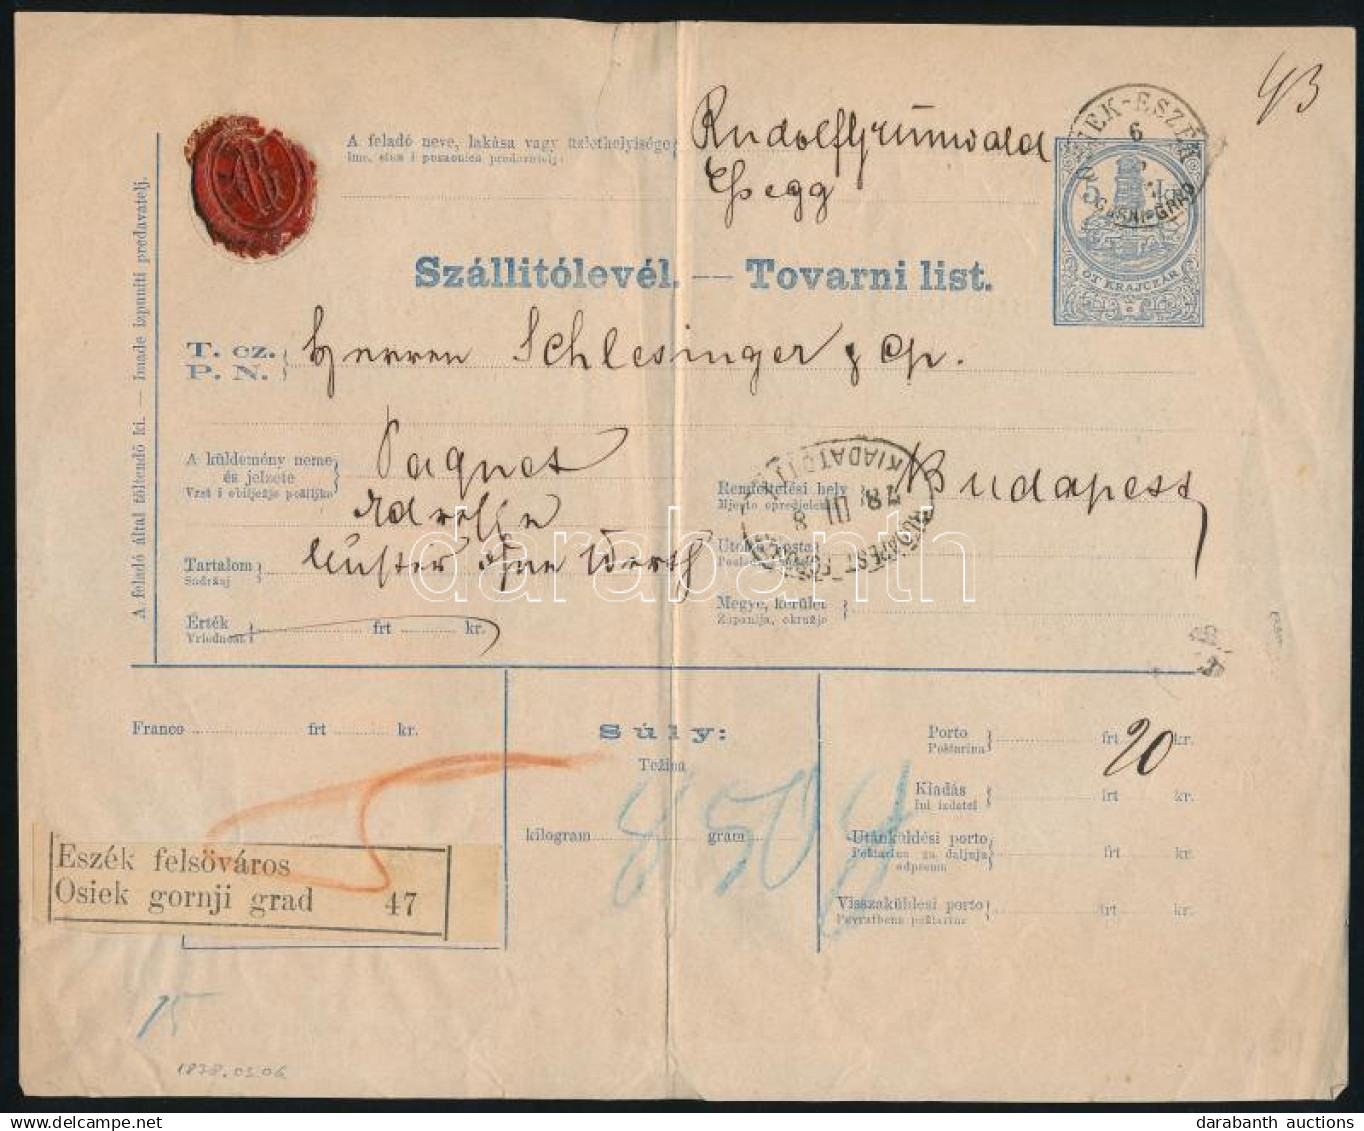 43
A feladó neve, lakása vagy üzlethelyisége
Ime, stan i poslaonica predavatelj:
Rudolf Grünwald
Essegg
OSIEK-ESZÉK
6
GORNJI-GRAD
5 kr
ÖT KRAJCZÁR
Szállitólevél. — Tovarni list.
A feladó által töltendő ki. — Imade izpuniti predavatelj.
T. cz.
P. N.
Herren Schlesinger & Cp.
A küldemény neme
és jelzete
Vrst i obilježje pošiljke
Paquet
Adresse
Rendeltetési hely
Mjesto opredjelenja
Budapest
BUDAPEST
KIADATOTT
78 III 8
Tartalom
Sadržaj
Muster ohne Werth
Utolsó posta
Megye, kerület
Županija, okružje
Érték
Vriednost
frt kr.
Franco frt kr.
Súly:
Težina
kilogram gram
8 50
Porto
Poštarina
frt 20 kr.
Kiadás
Ini izdatci
frt kr.
Utánküldési porto
Poštarina za daljnju
odpremu
frt kr.
Visszaküldesi porto
Povratbena poštarina
frt kr.
Eszék felsöváros
Osiek gornji grad 47
15
1878.03.06
darabanth
www.darabanth-auctions.com